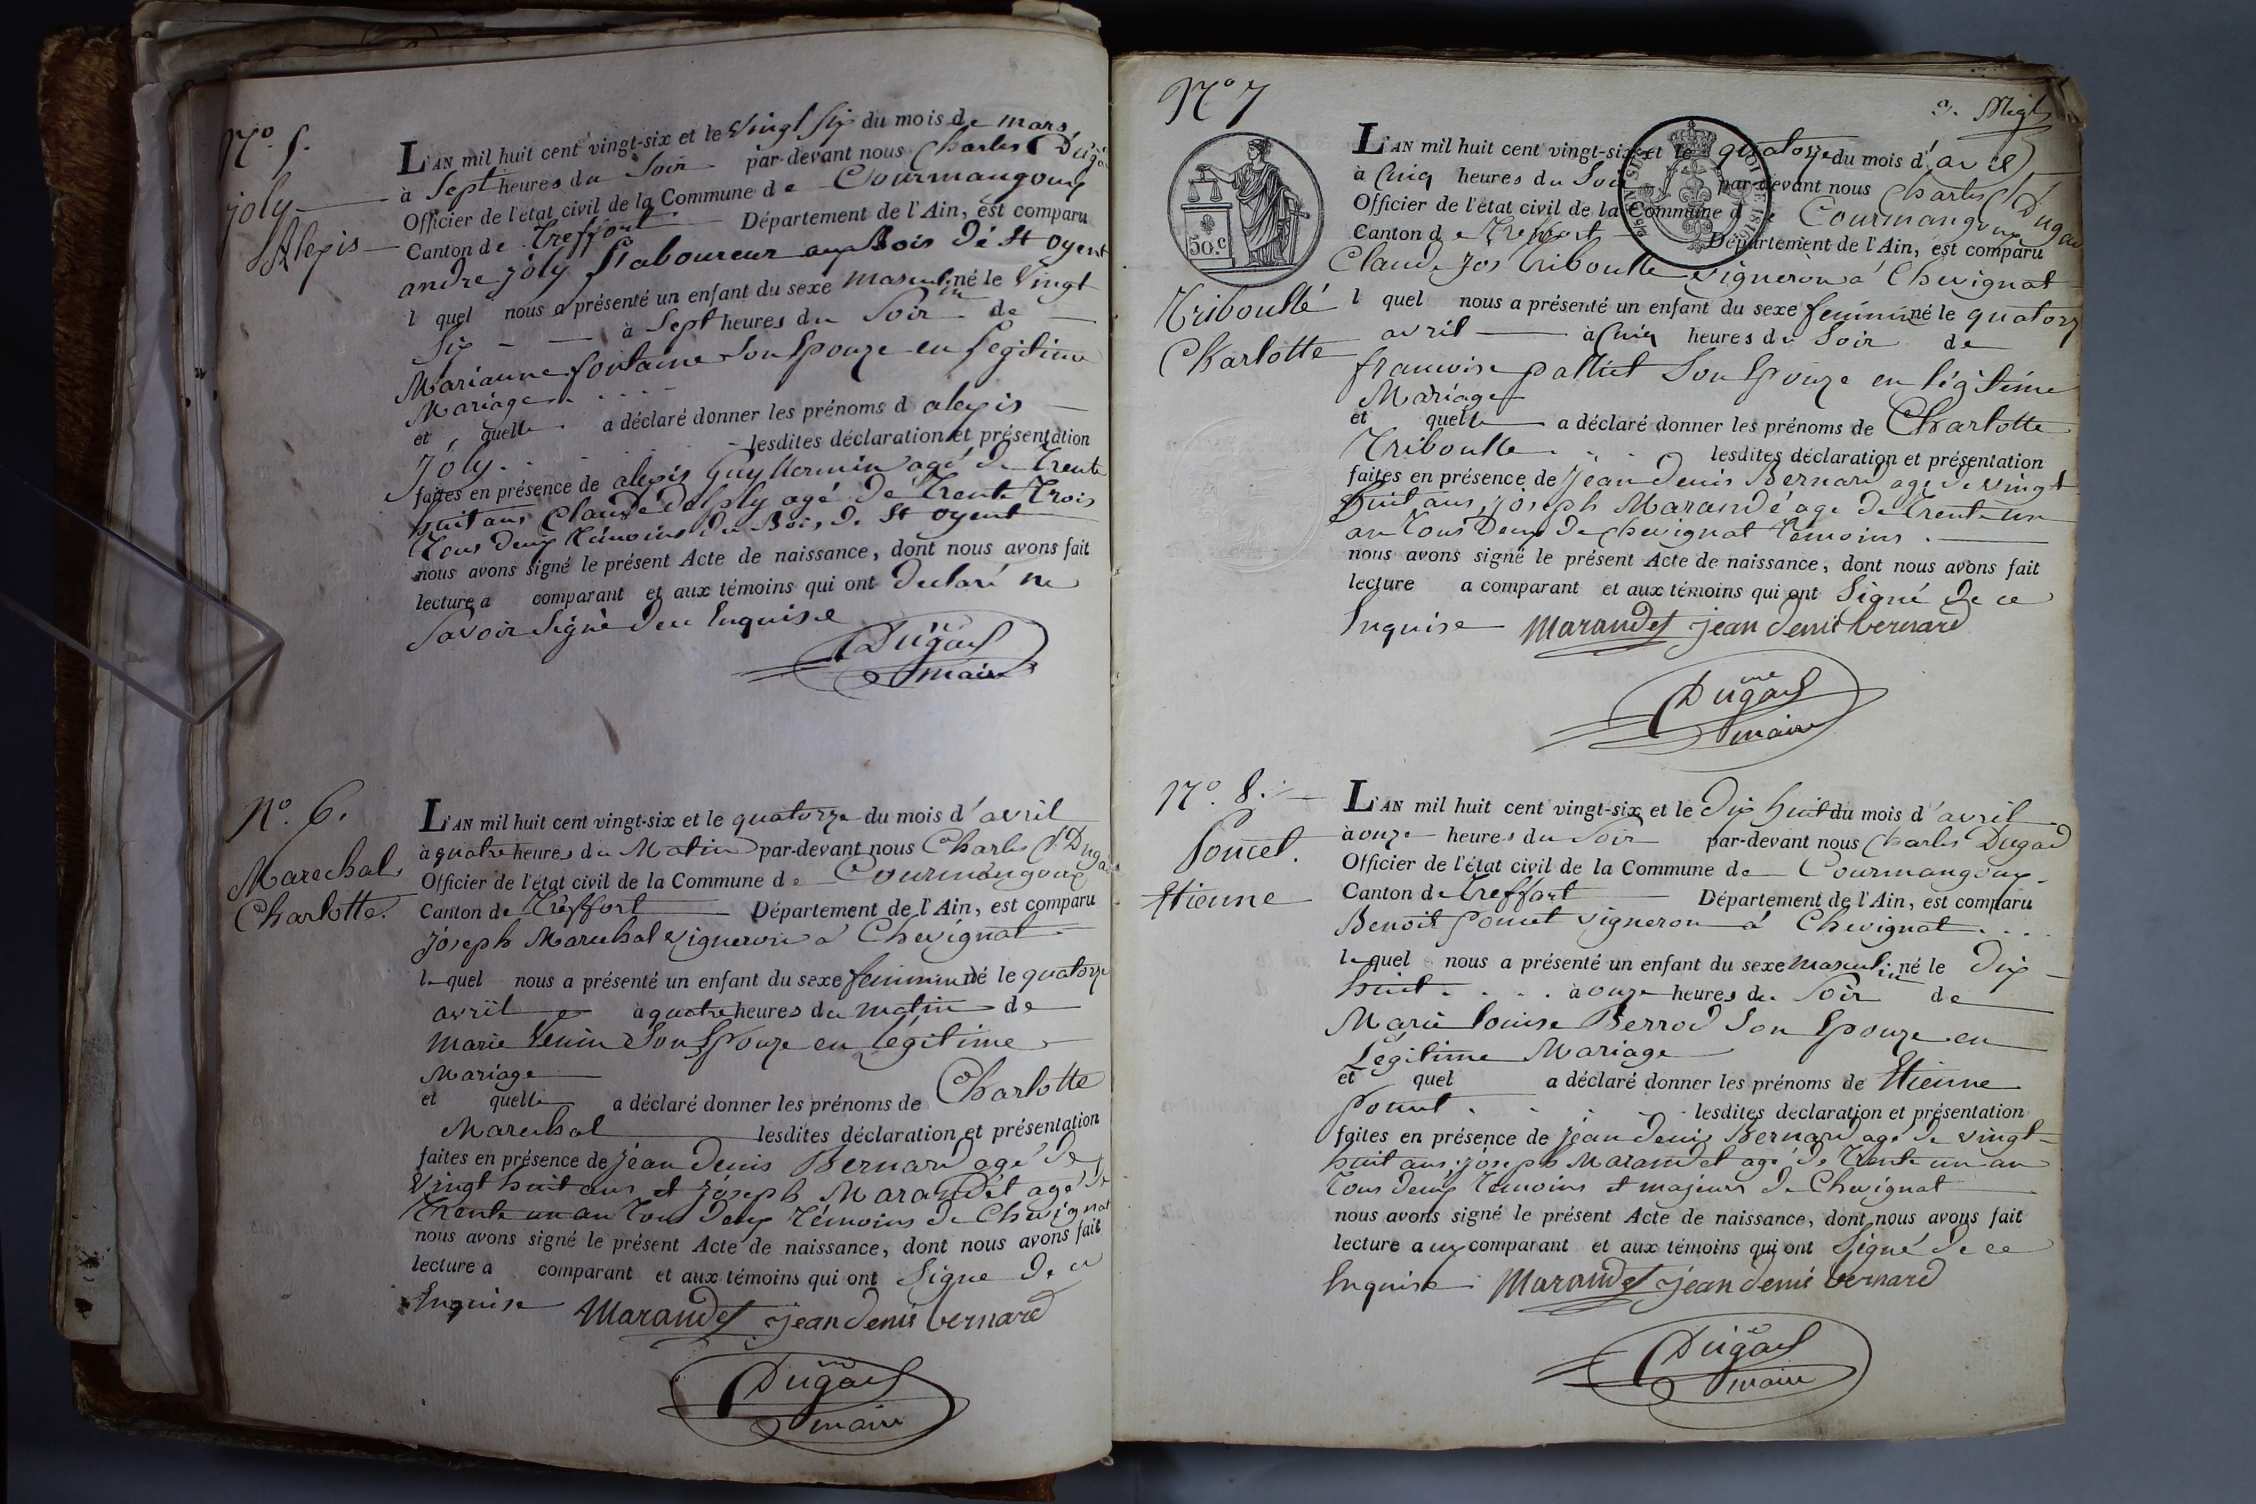 N.o 5.
joly
Alexis
L'AN mil huit cent vingt-six et le vingt six du mois de mars
à sept heures du soir par-devant nous Charles Dugad
Officier de l'état civil de la Commune de Courmangoux
Canton de treffort Département de l'Ain, est comparu
andre joly laboureur au Bois de St oyent
l quel nous a présenté un enfant du sexe masculin né le vingt
six à sept heures du soir de
Marianne fontaine son Epouze en legitime
Mariage
et quelle a déclaré donner les prénoms d alexis
joly. lesdites déclaration et présentation
faites en présence de alexis Guyllermin agé de trente
huit ans Claude dalply agé de trente trois
tous deux témoins du Bois de St oyent
nous avons signé le présent Acte de naissance, dont nous avons fait
lecture a comparant et aux témoins qui ont declaré ne
savoir signé de ce Enquise
Dugad
maire
N.o 6.
Marechal
Charlotte.
L'AN mil huit cent vingt-six et le quatorze du mois d'avril
à quatre heures du Matin par-devant nous Charles Dugad
Officier de l'état civil de la Commune de Courmangoux
Canton de Treffort Département de l'Ain, est comparu
joseph Marechal vigneron à Chevignat
le quel nous a présenté un enfant du sexe feminin né le quatorze
avril à quatre heures du matin de
marie son Epouze en légitime
Mariage
et quelle a déclaré donner les prénoms de Charlotte
Marechal lesdites déclaration et présentation
faites en présence de jean denis Bernard agé de
vingt huit ans et joseph Marandet agé de
trente un an tous deux témoins de Chevignat
nous avons signé le présent Acte de naissance, dont nous avons fait
lecture à comparant et aux témoins qui ont signe de ce
Enquise Marandet jean denis bernard
Dugad
maire
N.o 7
50.c
Triboullé
Charlotte
L'AN mil huit cent vingt-six et le quatorze du mois d'avril
à cinq heures du soir par-devant nous Charles Dugad
Officier de l'état civil de la Commune de Courmangoux
Canton de treffort Département de l'Ain, est comparu
Claude jos triboulle vigneron à Chevignat
l quel nous a présenté un enfant du sexe feminin né le quatorze
avril à cinq heures du soir de
francoise son Epouze en légitime
Mariage
et quelle a déclaré donner les prénoms de Charlotte
Triboulle lesdites déclaration et présentation
faites en présence de jean denis Bernard agé de vingt
huit ans, joseph Marandé agé de trente un
an tous deux de chevignat témoins
nous avons signé le présent Acte de naissance, dont nous avons fait
lecture a comparant et aux témoins qui ont signé de ce
Enquise Marandet jean denis bernard
Dugad
maire
N.o 8.
Poncet.
Etienne
L'AN mil huit cent vingt-six et le dix huit du mois d'avril
à onze heures du soir par-devant nous Charles Dugad
Officier de l'état civil de la Commune de Courmangoux
Canton de treffort Département de l'Ain, est comparu
Benoit Poncet vigneron à Chevignat
le quel nous a présenté un enfant du sexe masculin né le dix
huit à onze heures du soir de
Marie louise Berrod son Epouze en
Légitime Mariage
et quel a déclaré donner les prénoms de Etienne
Poncet lesdites déclaration et présentation
faites en présence de jean denis Bernard agé de vingt
huit ans, joseph Marandet agé de trente un an
tous deux témoins et majeurs de Chevignat
nous avons signé le présent Acte de naissance, dont nous avons fait
lecture aux comparant et aux témoins qui ont signé de ce
Enquise Marandet jean denis bernard
Dugad
maire